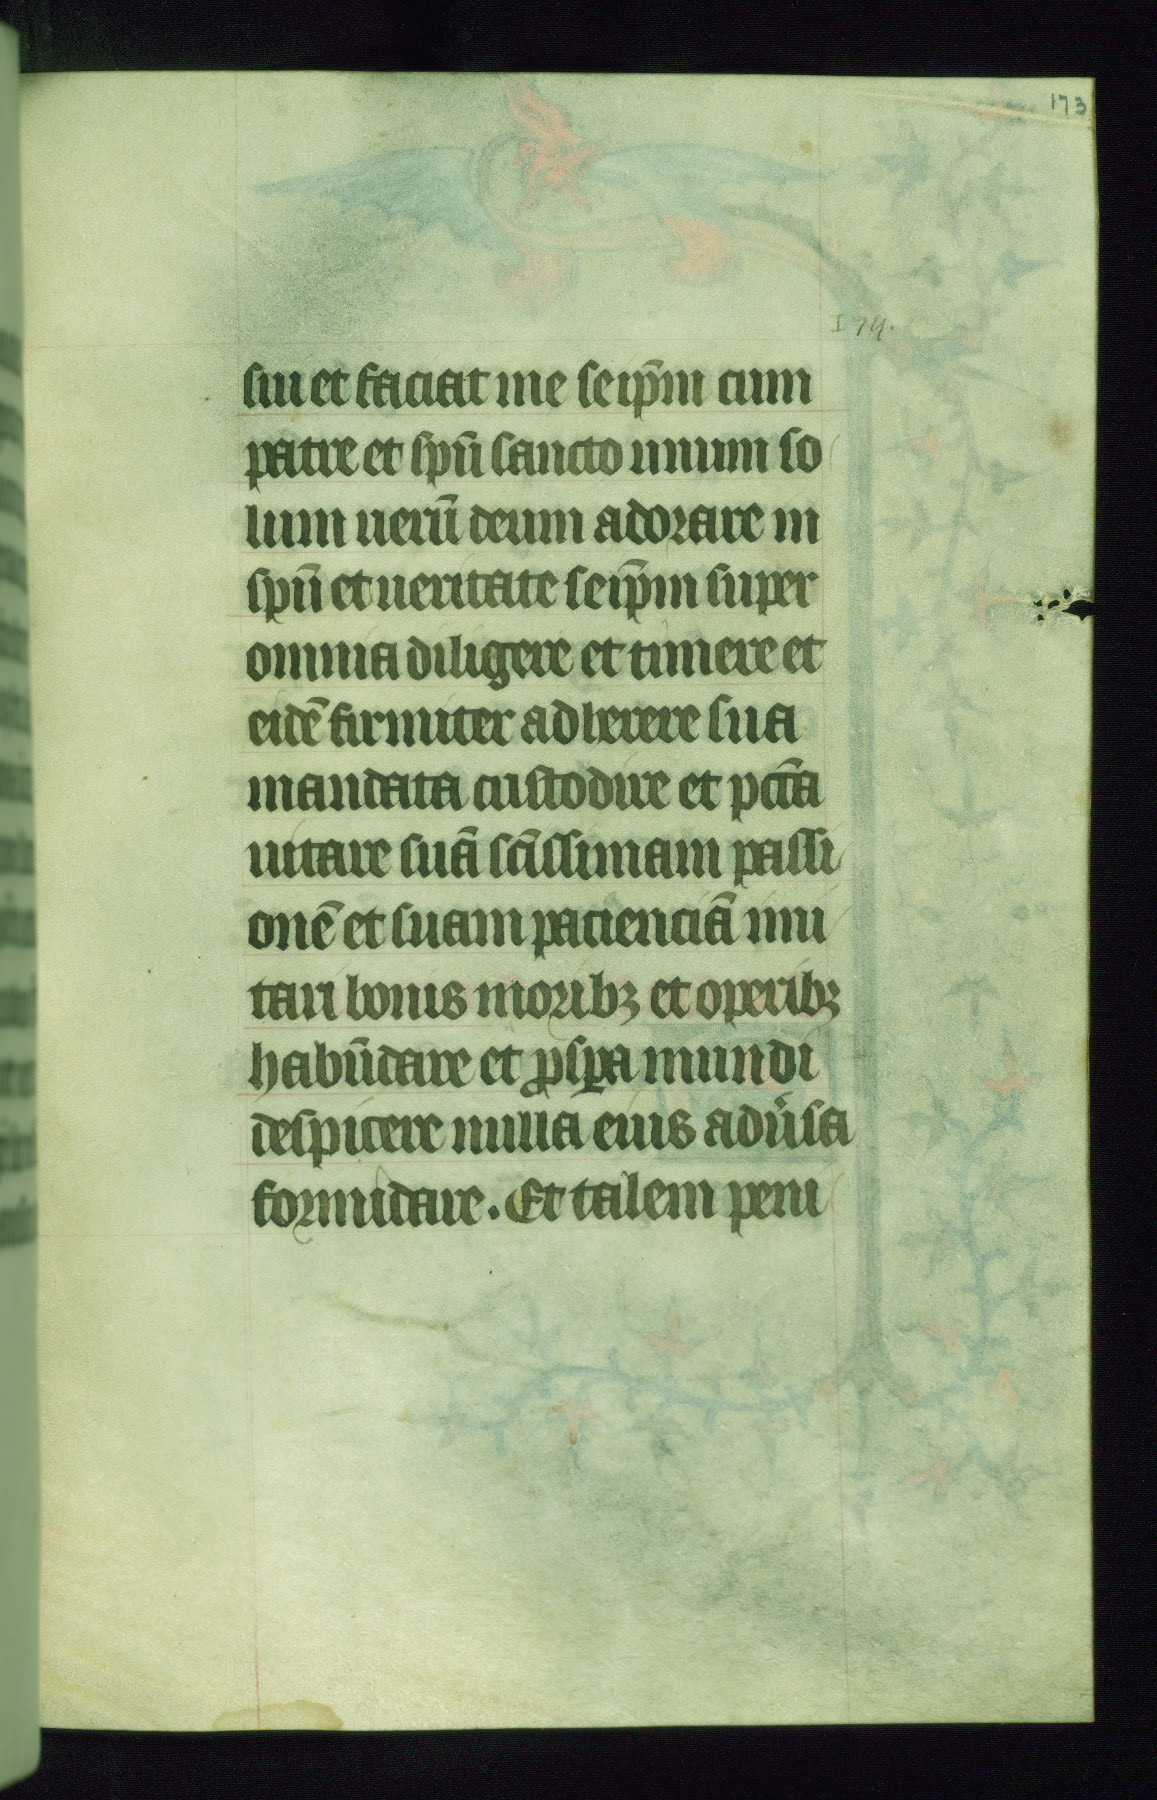 173
174.
sui et faciat me seip̄m cum
patre et sp̄u sancto unum so
lum uerū deum adorare in
sp̄u et ueritate seip̄m super
omnia diligere et timere et
eidē firmiter adherere sua
mandata custodire et pctā
uitare suā sc̄issimam passi
onē et suam pacienciā imi
tari bonis moribꝫ et operibꝫ
habūdare et ꝓsꝑa mundi
despicere nulla eius adu̾sa
formidare. Et talem peni